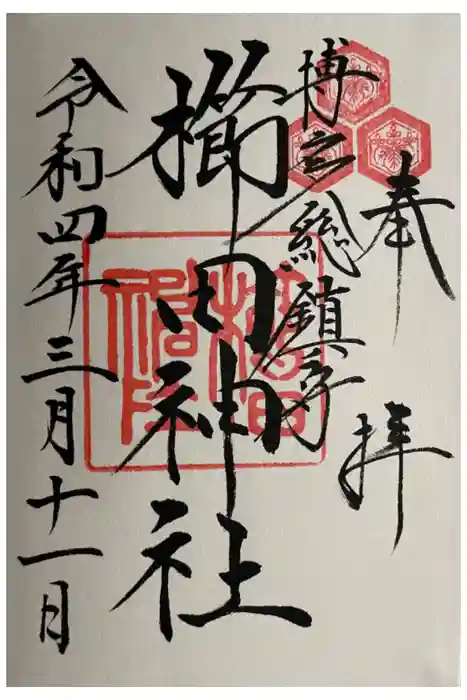 奉拝
博之総鎮守
櫛田神社
令和四年三月十一日